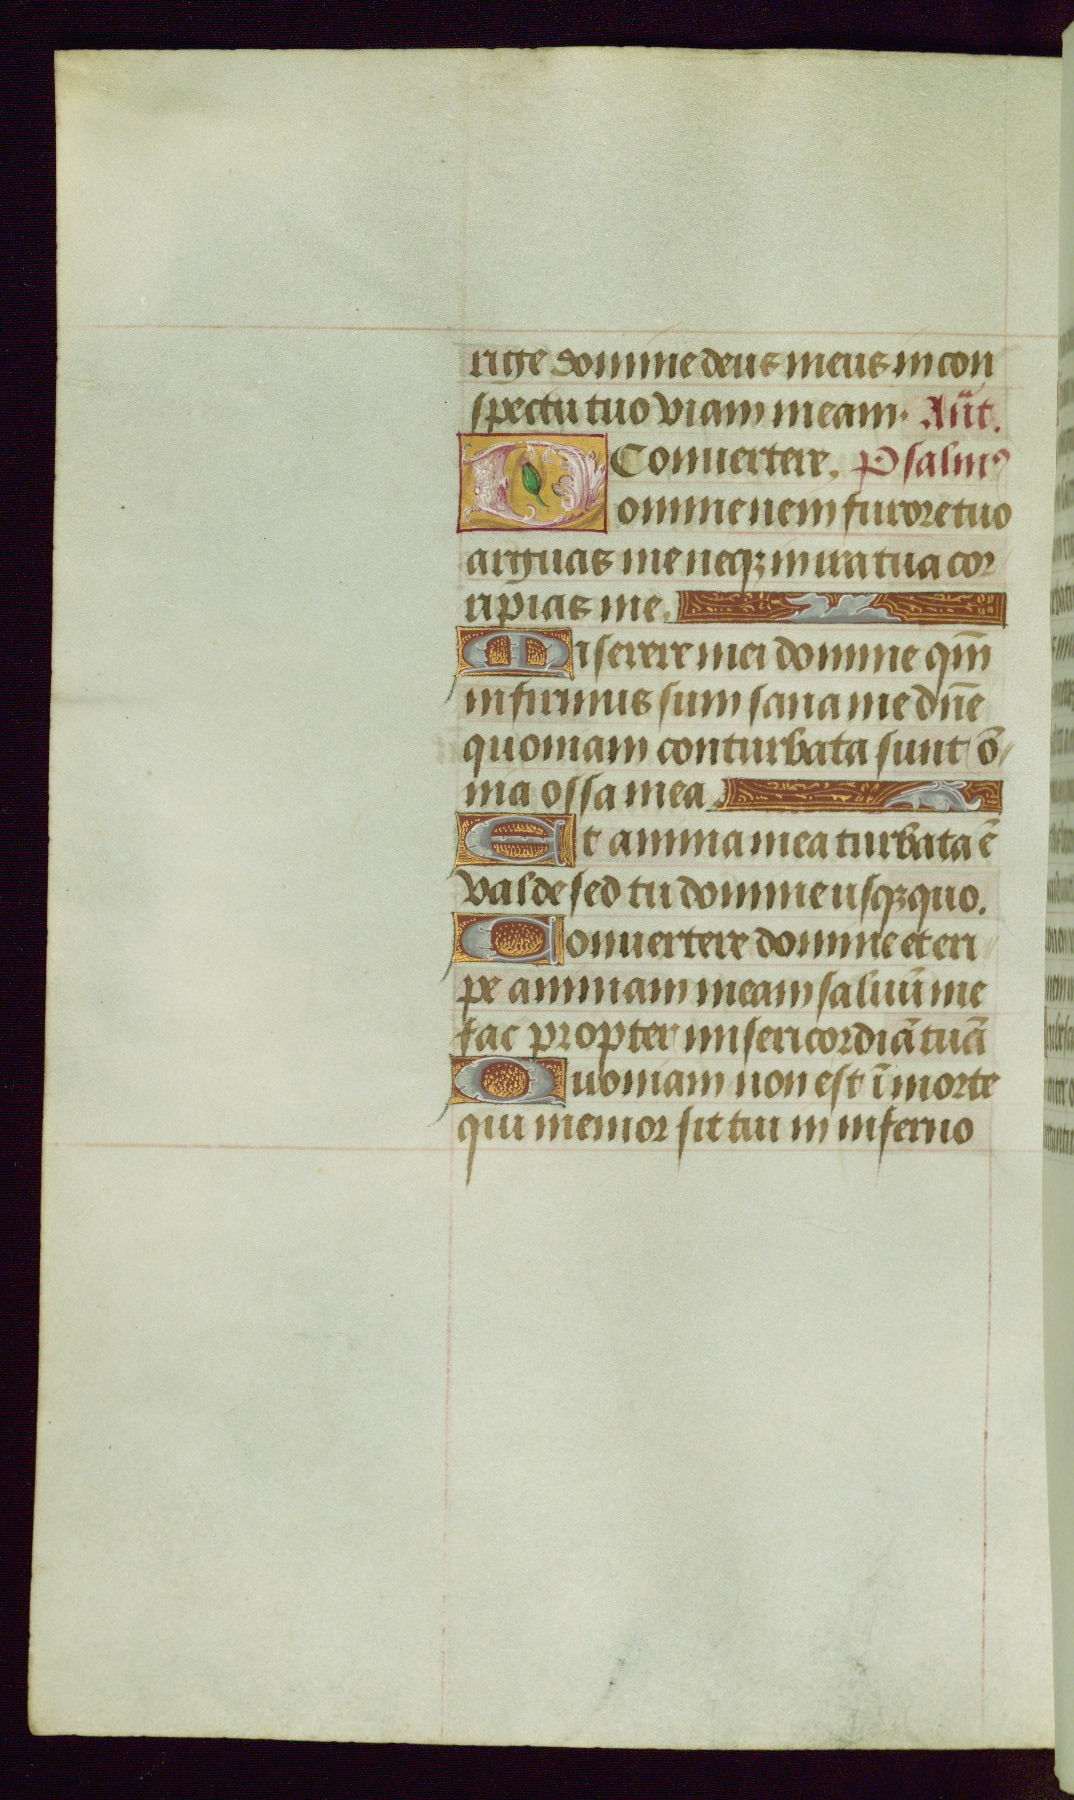 rige domine deus meus in con
spectu tuo viam meam. Añt.
Conuertere. Psalmꝰ
Domine ne in furore tuo
arguas me neqꝫ in ira tua cor
ripias me.
Miserere mei domine qm̄
infirmus sum sana me dn̄e
quoniam conturbata sunt o̅
nia ossa mea.
Et anima mea turbata ē
valde sed tu domine usqꝫquo.
Conuertere domine et eri
pe animam meam saluū me
fac propter misericordiā tuā
Quoniam non est ī morte
qui memor sit tui in inferno